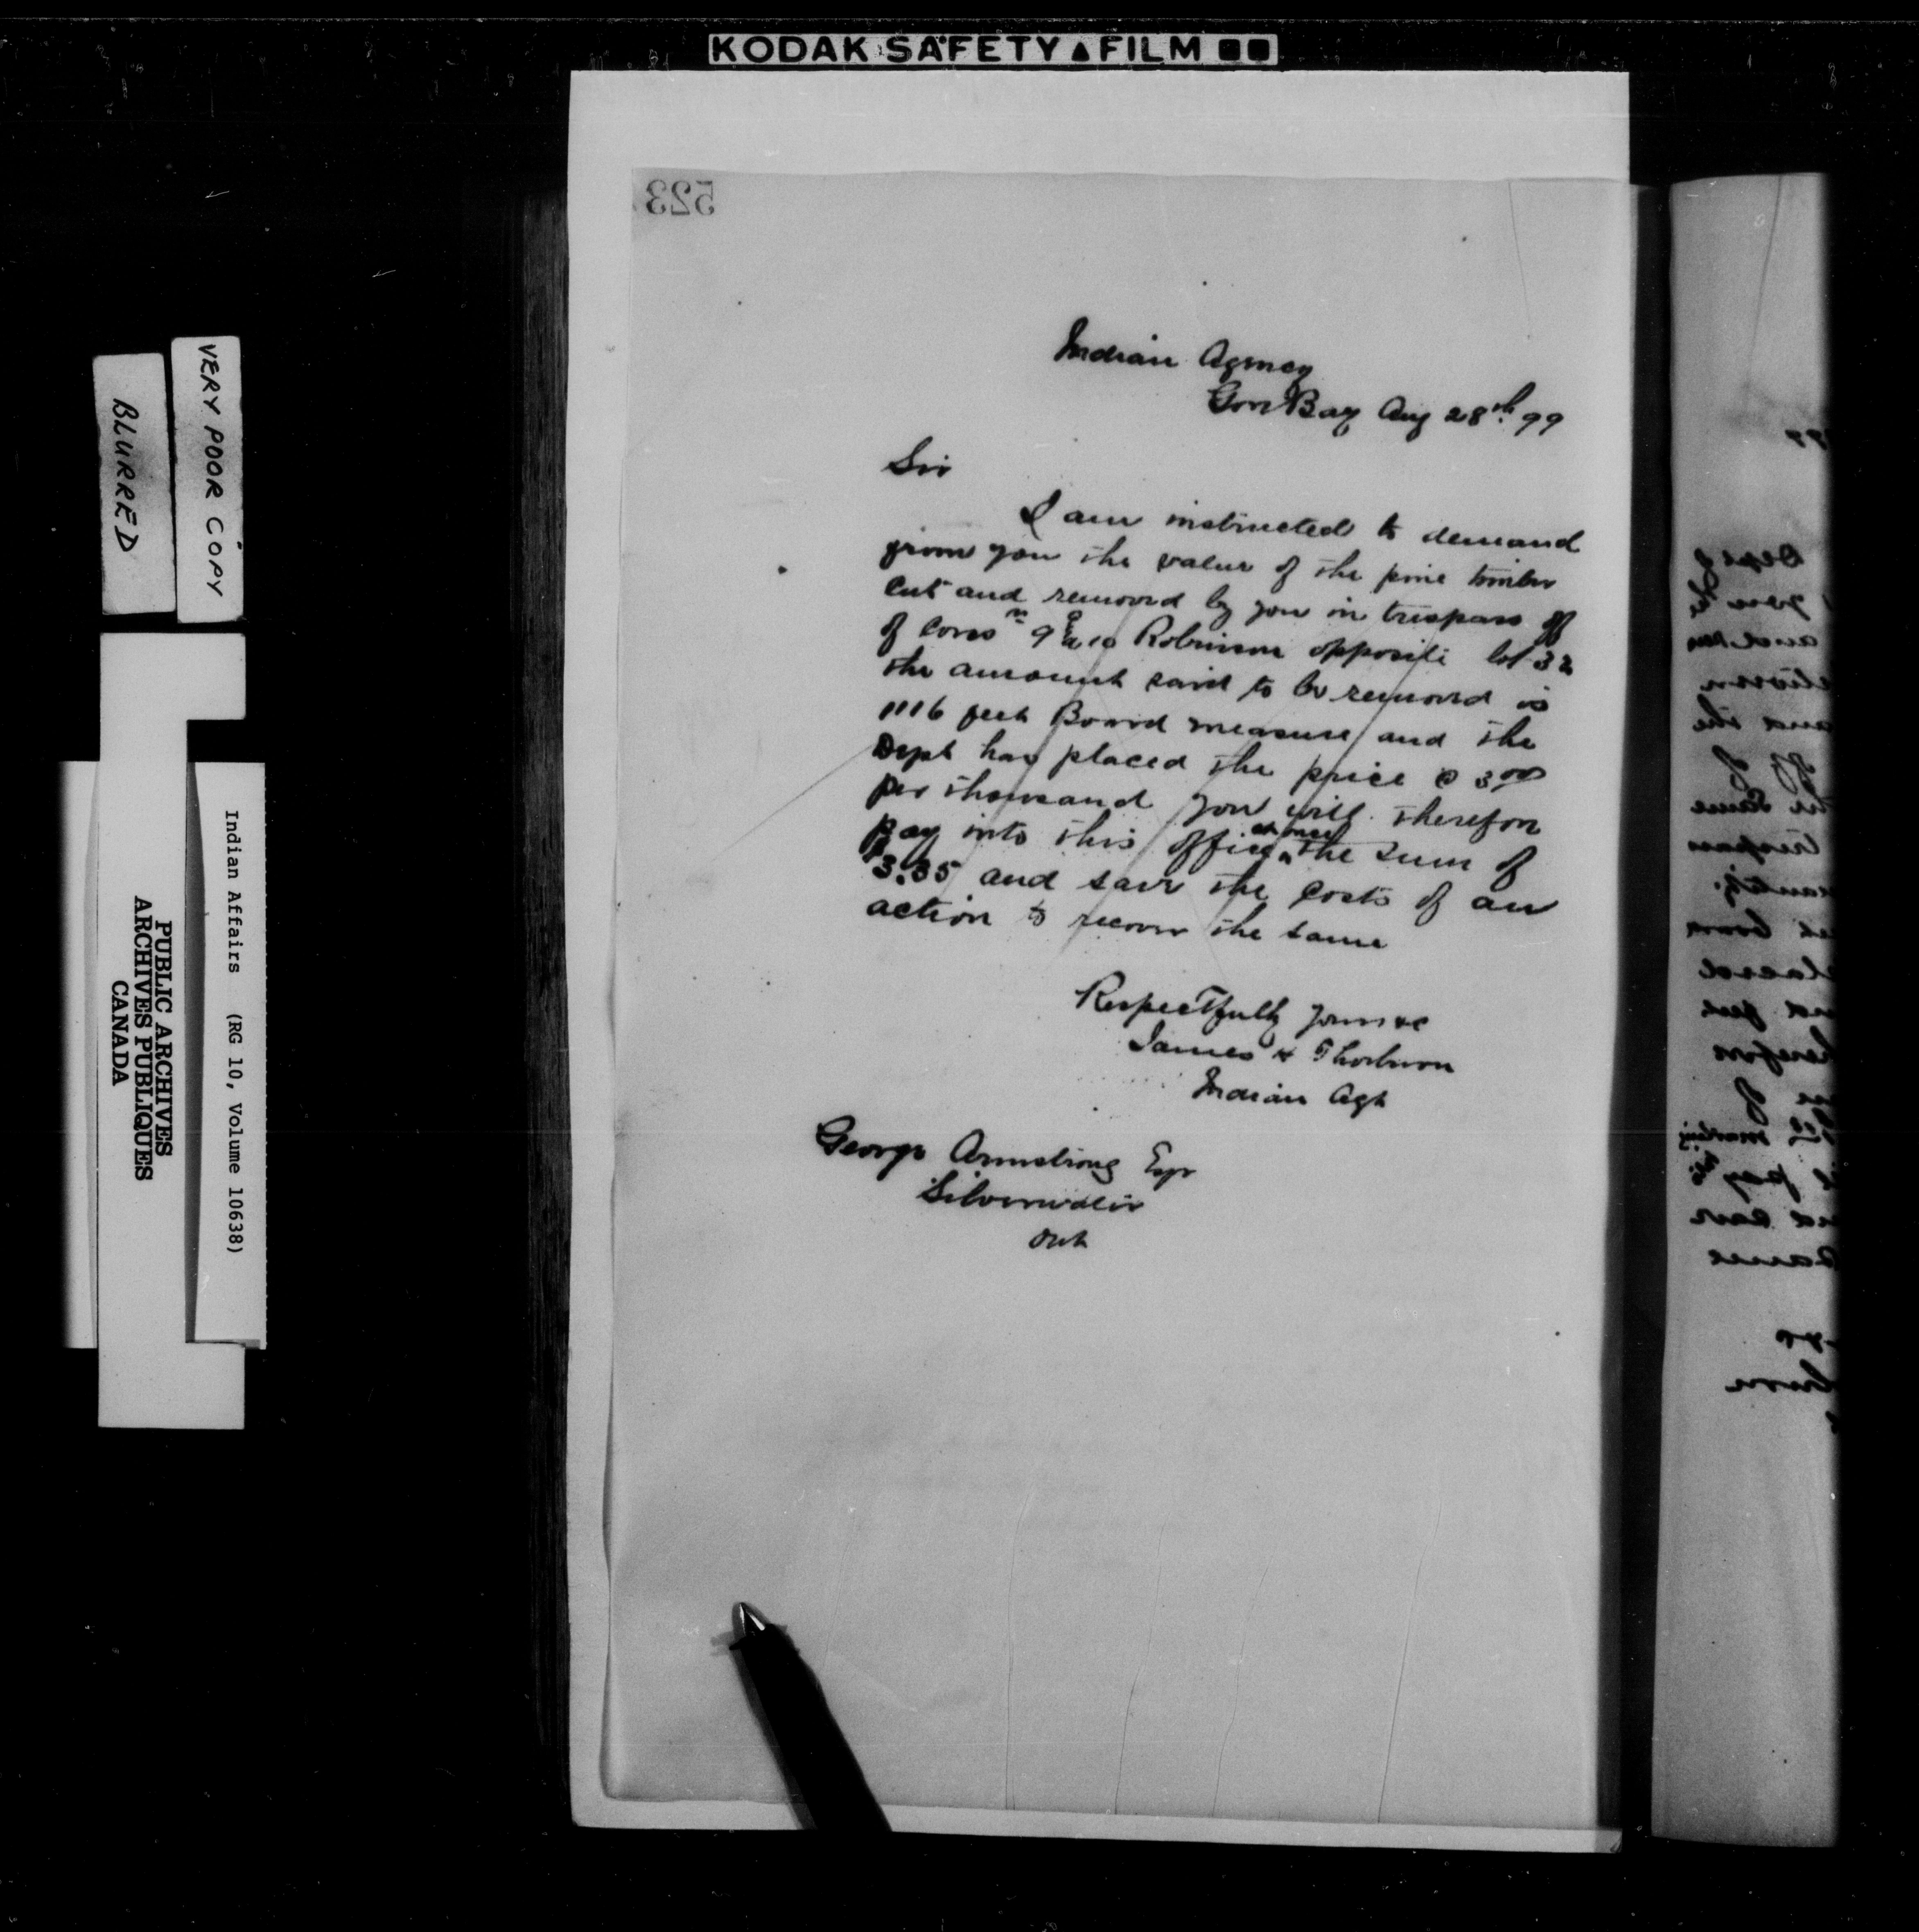 KODAK SAFETY FILM
523
Indian Agency
Gore Bay Aug 28th 99
Sir
I am instructed to demand
from you the value of the pine timber
cut and removed by you in trespass off
of Conss 9 & 10 Robinson opposite lot 32
the amount said to be removed is
1116 feet Board measure and the
Dept has placed the price @ 3.00
per thousand you will therefore
pay into this office at once the sum of
$3.35 and save the costs of an
action to recover the same
Respectfully yours &c
James H Thorburn
Indian Agt
George Armstrong Esqr
Silverwater
Ont
VERY POOR COPY
BLURRED
Indian Affairs (RG 10, Volume 10638)
PUBLIC ARCHIVES
ARCHIVES PUBLIQUES
CANADA